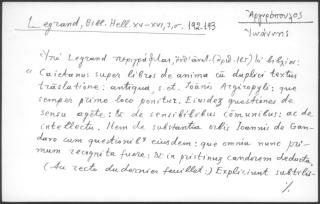 Legrand, Bibl. Hell. XV-XVI, 3, σ. 192.193
Ἀργυρόπουλος
Ἰωάννης
Ὑπὸ Legrand περιγράφεται, ἔνθ' ἀνωτ. (ἀριθ. 165) τὸ βιβλίον:
"Caietanus super libros de anima cū duplici textus
trāslatione: antiqua, s. et. Ioānis Argiropyli: que
semper primo loco ponitur. Eiusdēz questiones de
sensu agēte: & de sensibilibus cōmunibus: ac de
intellectu. Item de substantia orbis Ioannis de Gan-
davo cum questionibus eiusdem: que omnia nunc pri-
mum recognita fuere: & in pristinuz candorem deducta.
(Au recto du dernier feuillet:) Expliciunt subtilis-
%